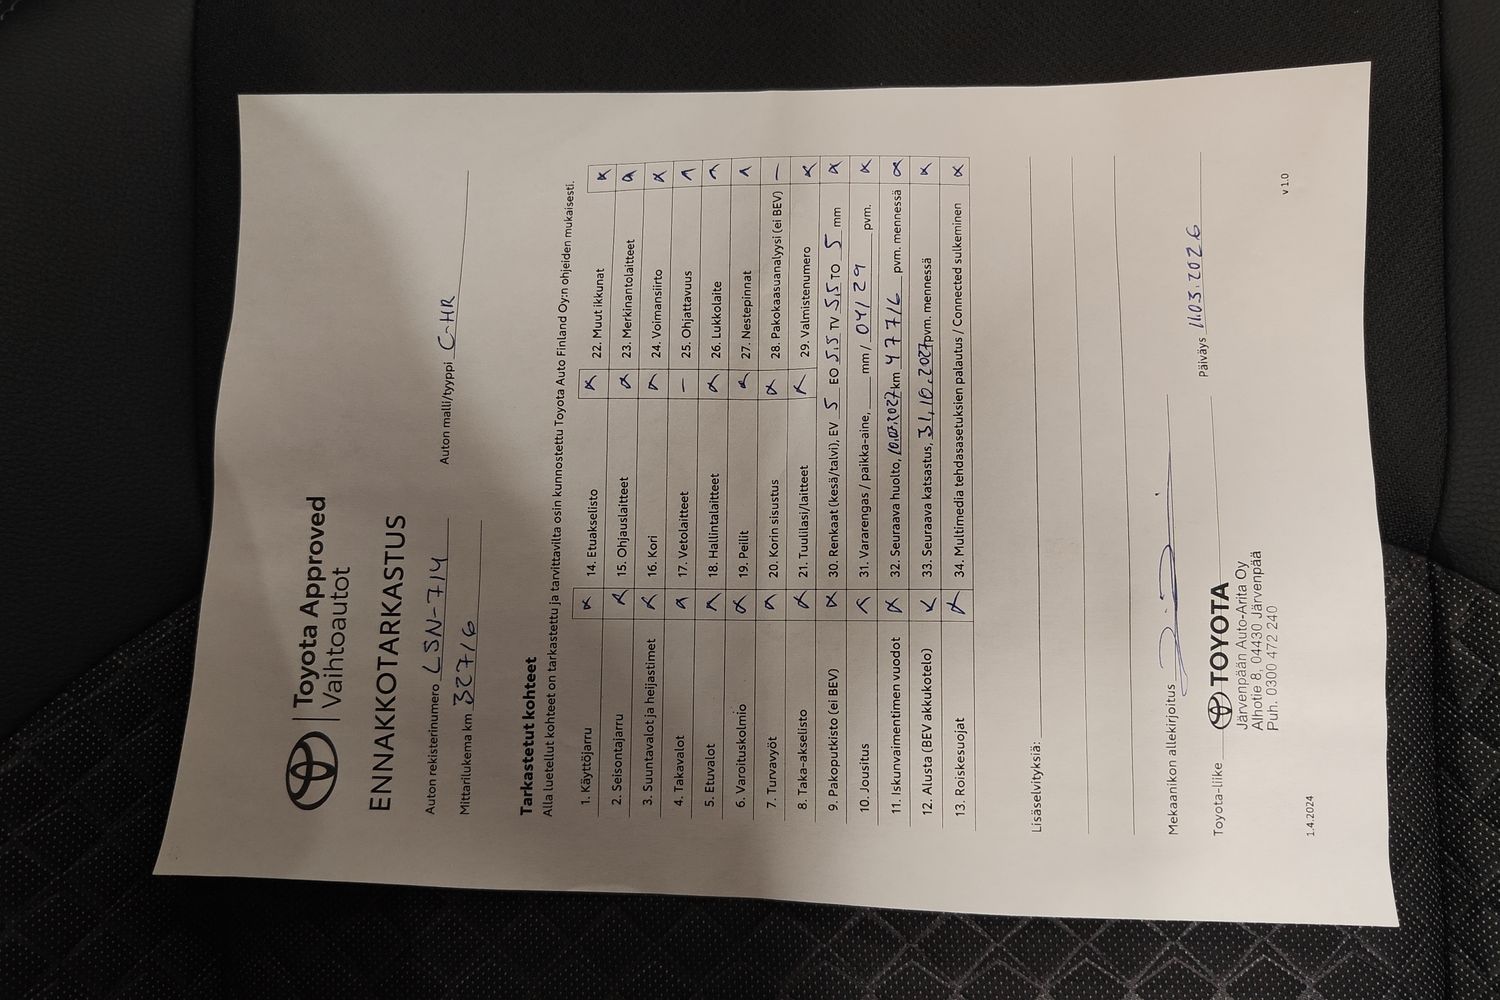 Toyota Approved
Vaihtoautot
ENNAKKOTARKASTUS
Auton rekisterinumero LSN-714 Auton malli/tyyppi C-HR
Mittarilukema km 32716
Tarkastetut kohteet
Alla luetellut kohteet on tarkastettu ja tarvittavilta osin kunnostettu Toyota Auto Finland Oy:n ohjeiden mukaisesti.
1. Käyttöjarru
2. Seisontajarru
3. Suuntavalot ja heijastimet
4. Takavalot
5. Etuvalot
6. Varoituskolmio
7. Turvavyöt
8. Taka-akselisto
9. Pakoputkisto (ei BEV)
10. Jousitus
11. Iskunvaimentimen vuodot
12. Alusta (BEV akkukotelo)
13. Roiskesuojat
14. Etuakselisto
15. Ohjauslaitteet
16. Kori
17. Vetolaitteet –
18. Hallintalaitteet
19. Peilit
20. Korin sisustus
21. Tuulilasi/laitteet
22. Muut ikkunat
23. Merkinantolaitteet
24. Voimansiirto
25. Ohjattavuus
26. Lukkolaite
27. Nestepinnat
28. Pakokaasuanalyysi (ei BEV) –
29. Valmistenumero
30. Renkaat (kesä/talvi), EV 5 EO 5,5 TV 5,5 TO 5 mm
31. Vararengas / paikka-aine, mm / 04/29 pvm.
32. Seuraava huolto, 10.07.2027 km 47716 pvm. mennessä
33. Seuraava katsastus, 31.10.2027 pvm. mennessä
34. Multimedia tehdasasetuksien palautus / Connected sulkeminen
Lisäselvityksiä:
Mekaanikon allekirjoitus Päiväys 11.03.2026
Toyota-liike TOYOTA
Järvenpään Auto-Arita Oy
Alhotie 8, 04430 Järvenpää
Puh. 0300 472 240
1.4.2024 v 1.0